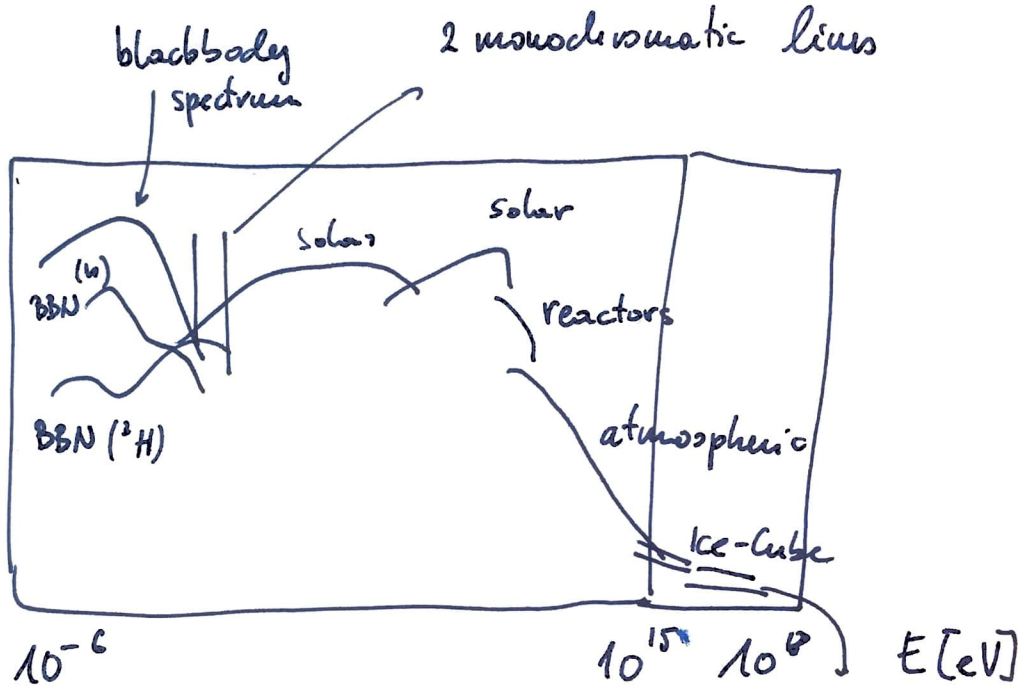 blackbody
spectrum
2 monochromatic lines
solar
solar
BBN (n)
reactors
BBN (³H)
atmospheric
Ice-Cube
10⁻⁶
10¹⁵
10¹⁸
E [eV]